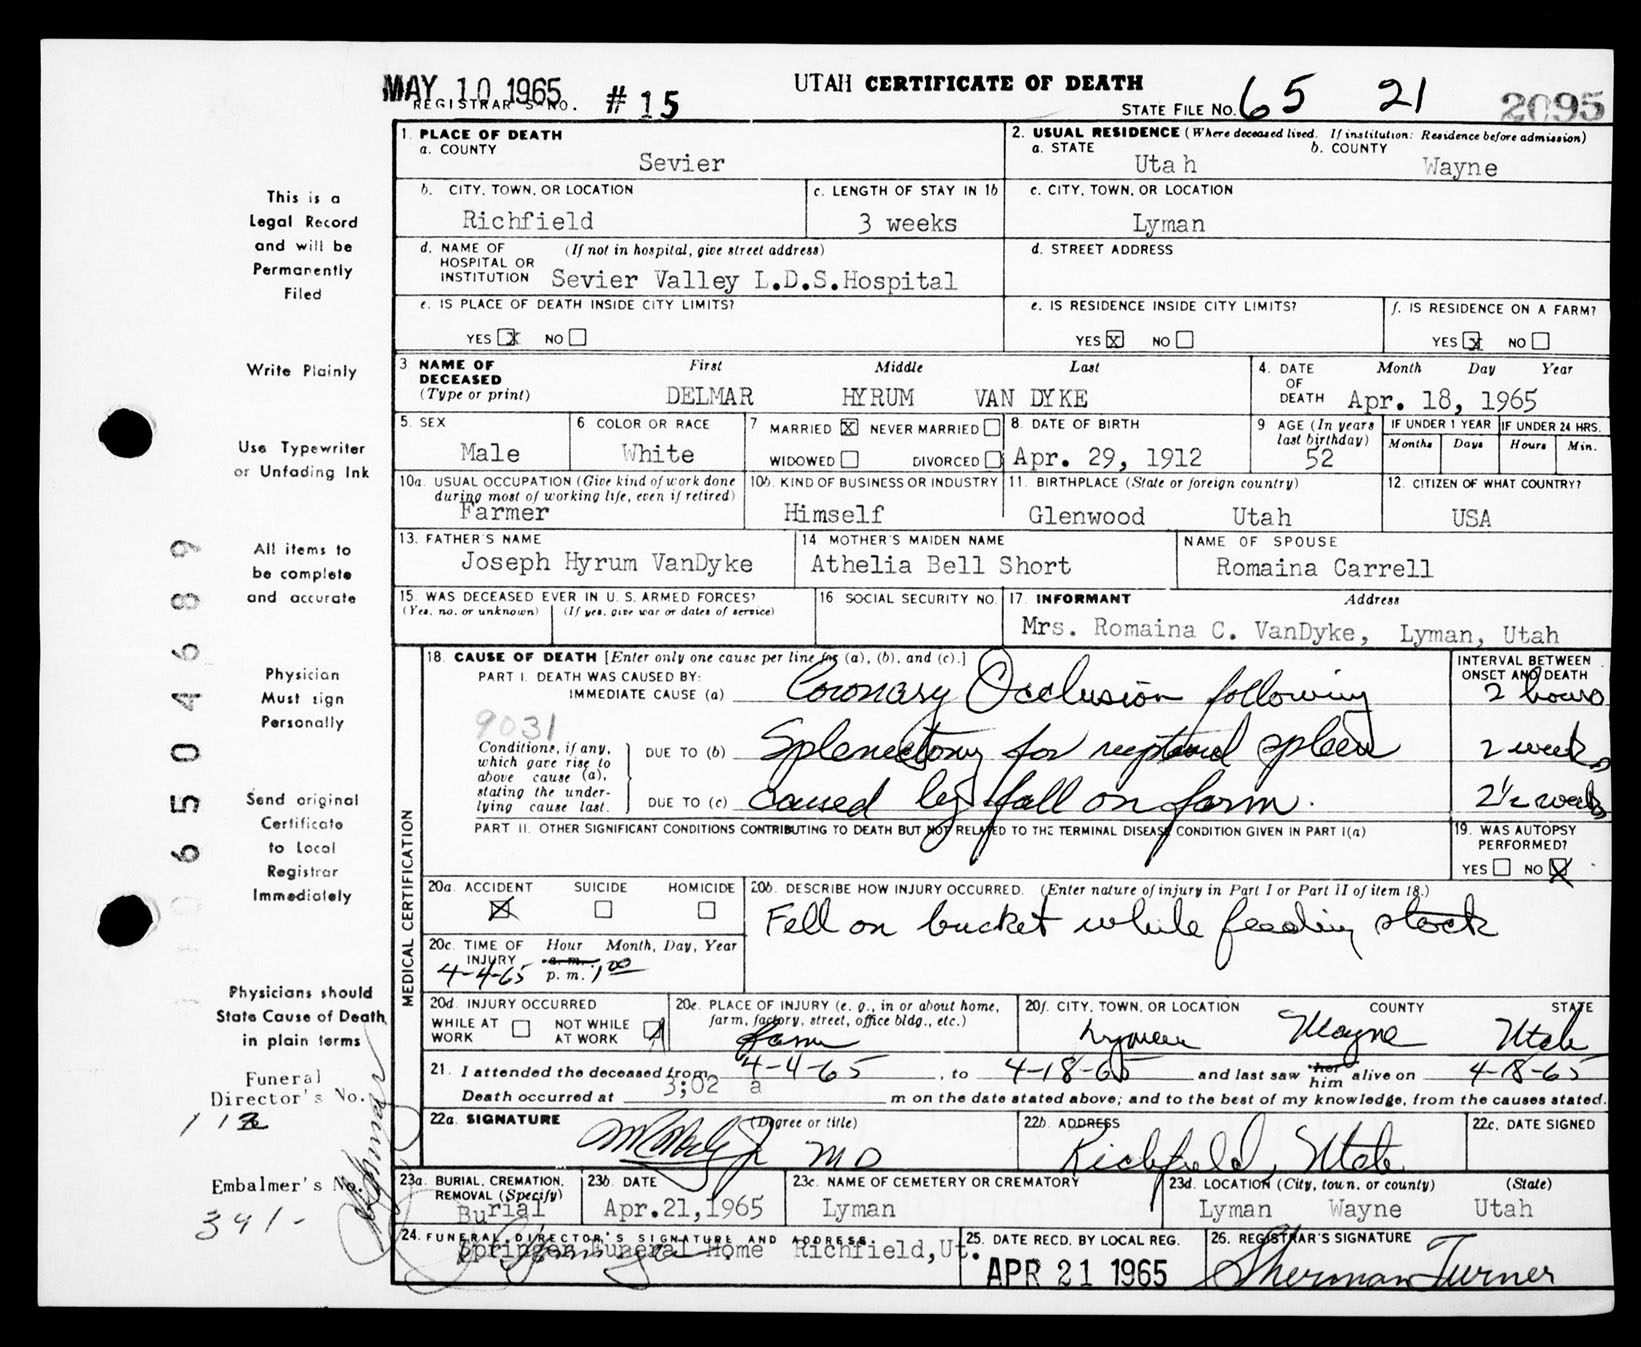 MAY 10 1965
UTAH CERTIFICATE OF DEATH
REGISTRAR'S NO. #15
STATE FILE NO. 65 21 2095
1. PLACE OF DEATH
a. COUNTY
Sevier
2. USUAL RESIDENCE (Where deceased lived. If institution: Residence before admission)
a. STATE b. COUNTY
Utah Wayne
b. CITY, TOWN, OR LOCATION
Richfield
c. LENGTH OF STAY IN 1b
3 weeks
c. CITY, TOWN, OR LOCATION
Lyman
d. NAME OF HOSPITAL OR INSTITUTION (If not in hospital, give street address)
Sevier Valley L.D.S.Hospital
d. STREET ADDRESS
e. IS PLACE OF DEATH INSIDE CITY LIMITS?
YES X NO
e. IS RESIDENCE INSIDE CITY LIMITS?
YES X NO
f. IS RESIDENCE ON A FARM?
YES X NO
3 NAME OF DECEASED (Type or print)
First Middle Last
DELMAR HYRUM VAN DYKE
4. DATE OF DEATH
Month Day Year
Apr. 18, 1965
5. SEX
Male
6 COLOR OR RACE
White
7 MARRIED X NEVER MARRIED
WIDOWED DIVORCED
8. DATE OF BIRTH
Apr. 29, 1912
9 AGE (In years last birthday)
52
IF UNDER 1 YEAR
Months Days
IF UNDER 24 HRS.
Hours Min.
10a. USUAL OCCUPATION (Give kind of work done during most of working life, even if retired)
Farmer
10b. KIND OF BUSINESS OR INDUSTRY
Himself
11. BIRTHPLACE (State or foreign country)
Glenwood Utah
12. CITIZEN OF WHAT COUNTRY?
USA
13. FATHER'S NAME
Joseph Hyrum VanDyke
14 MOTHER'S MAIDEN NAME
Athelia Bell Short
NAME OF SPOUSE
Romaina Carrell
15. WAS DECEASED EVER IN U. S. ARMED FORCES?
(Yes, no, or unknown) (If yes, give war or dates of service)
16. SOCIAL SECURITY NO.
17. INFORMANT Address
Mrs. Romaina C. VanDyke, Lyman, Utah
MEDICAL CERTIFICATION
18. CAUSE OF DEATH [Enter only one cause per line for (a), (b), and (c).]
INTERVAL BETWEEN ONSET AND DEATH
PART I. DEATH WAS CAUSED BY:
IMMEDIATE CAUSE (a) Coronary Occlusion following 2 hours
9031
Conditions, if any, which gave rise to above cause (a), stating the underlying cause last.
DUE TO (b) Splenectomy for ruptured spleen 2 weeks
DUE TO (c) caused by fall on farm. 2 1/2 weeks
PART II. OTHER SIGNIFICANT CONDITIONS CONTRIBUTING TO DEATH BUT NOT RELATED TO THE TERMINAL DISEASE CONDITION GIVEN IN PART I(a)
19. WAS AUTOPSY PERFORMED?
YES NO X
20a. ACCIDENT SUICIDE HOMICIDE
X
20b. DESCRIBE HOW INJURY OCCURRED. (Enter nature of injury in Part I or Part II of item 18.)
Fell on bucket while feeding stock
20c. TIME OF INJURY Hour Month, Day, Year
4-4-65 a. m. p. m. 1 00
20d. INJURY OCCURRED
WHILE AT WORK NOT WHILE AT WORK
20e. PLACE OF INJURY (e. g., in or about home, farm, factory, street, office bldg., etc.)
farm
20f. CITY, TOWN, OR LOCATION COUNTY STATE
Lyman Wayne Utah
21. I attended the deceased from 4-4-65, to 4-18-65 and last saw her him alive on 4-18-65
Death occurred at 3;02 a m on the date stated above; and to the best of my knowledge, from the causes stated.
22a. SIGNATURE (Degree or title)
MD
22b. ADDRESS
Richfield, Utah
22c. DATE SIGNED
23a. BURIAL, CREMATION, REMOVAL (Specify)
Burial
23b. DATE
Apr.21,1965
23c. NAME OF CEMETERY OR CREMATORY
Lyman
23d. LOCATION (City, town, or county) (State)
Lyman Wayne Utah
24. FUNERAL DIRECTOR'S SIGNATURE AND ADDRESS
Springer Funeral Home Richfield,Ut.
25. DATE RECD. BY LOCAL REG.
APR 21 1965
26. REGISTRAR'S SIGNATURE
Sherman Turner
This is a
Legal Record
and will be
Permanently
Filed
Write Plainly
Use Typewriter
or Unfading Ink
All items to
be complete
and accurate
Physician
Must sign
Personally
Send original
Certificate
to Local
Registrar
Immediately
Physicians should
State Cause of Death
in plain terms
Funeral
Director's No.
Embalmer's No.
391-